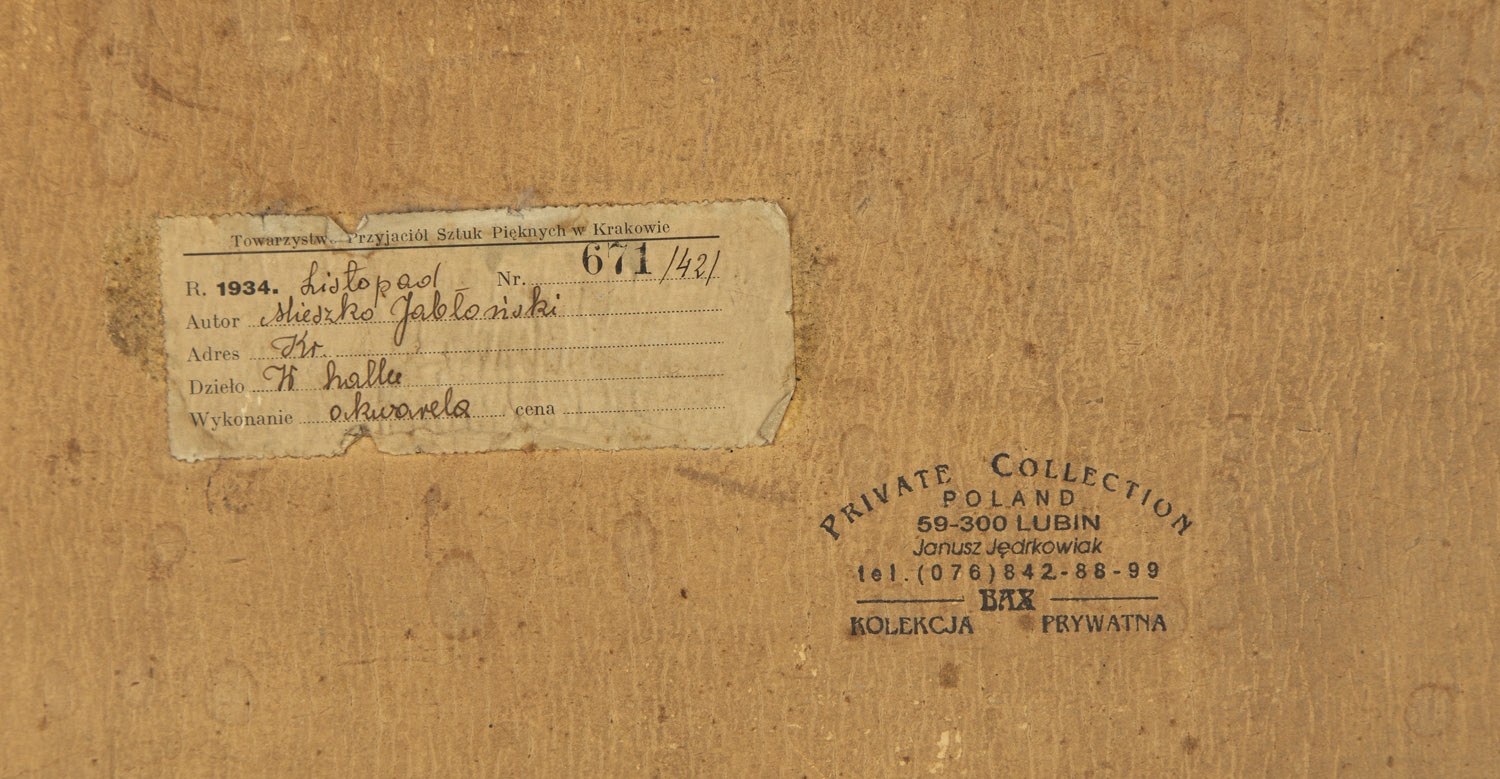 Towarzystw Przyjaciół Sztuk Pięknych w Krakowie
R. 1934. Listopad Nr. 671/421
Autor Mieszko Jabłoński
Adres Kr.
Dzieło W hallu
Wykonanie akwarela cena
PRIVATE COLLECTION
POLAND
59-300 LUBIN
Janusz Jędrkowiak
tel.(076)842-88-99
BAX
KOLEKCJA PRYWATNA